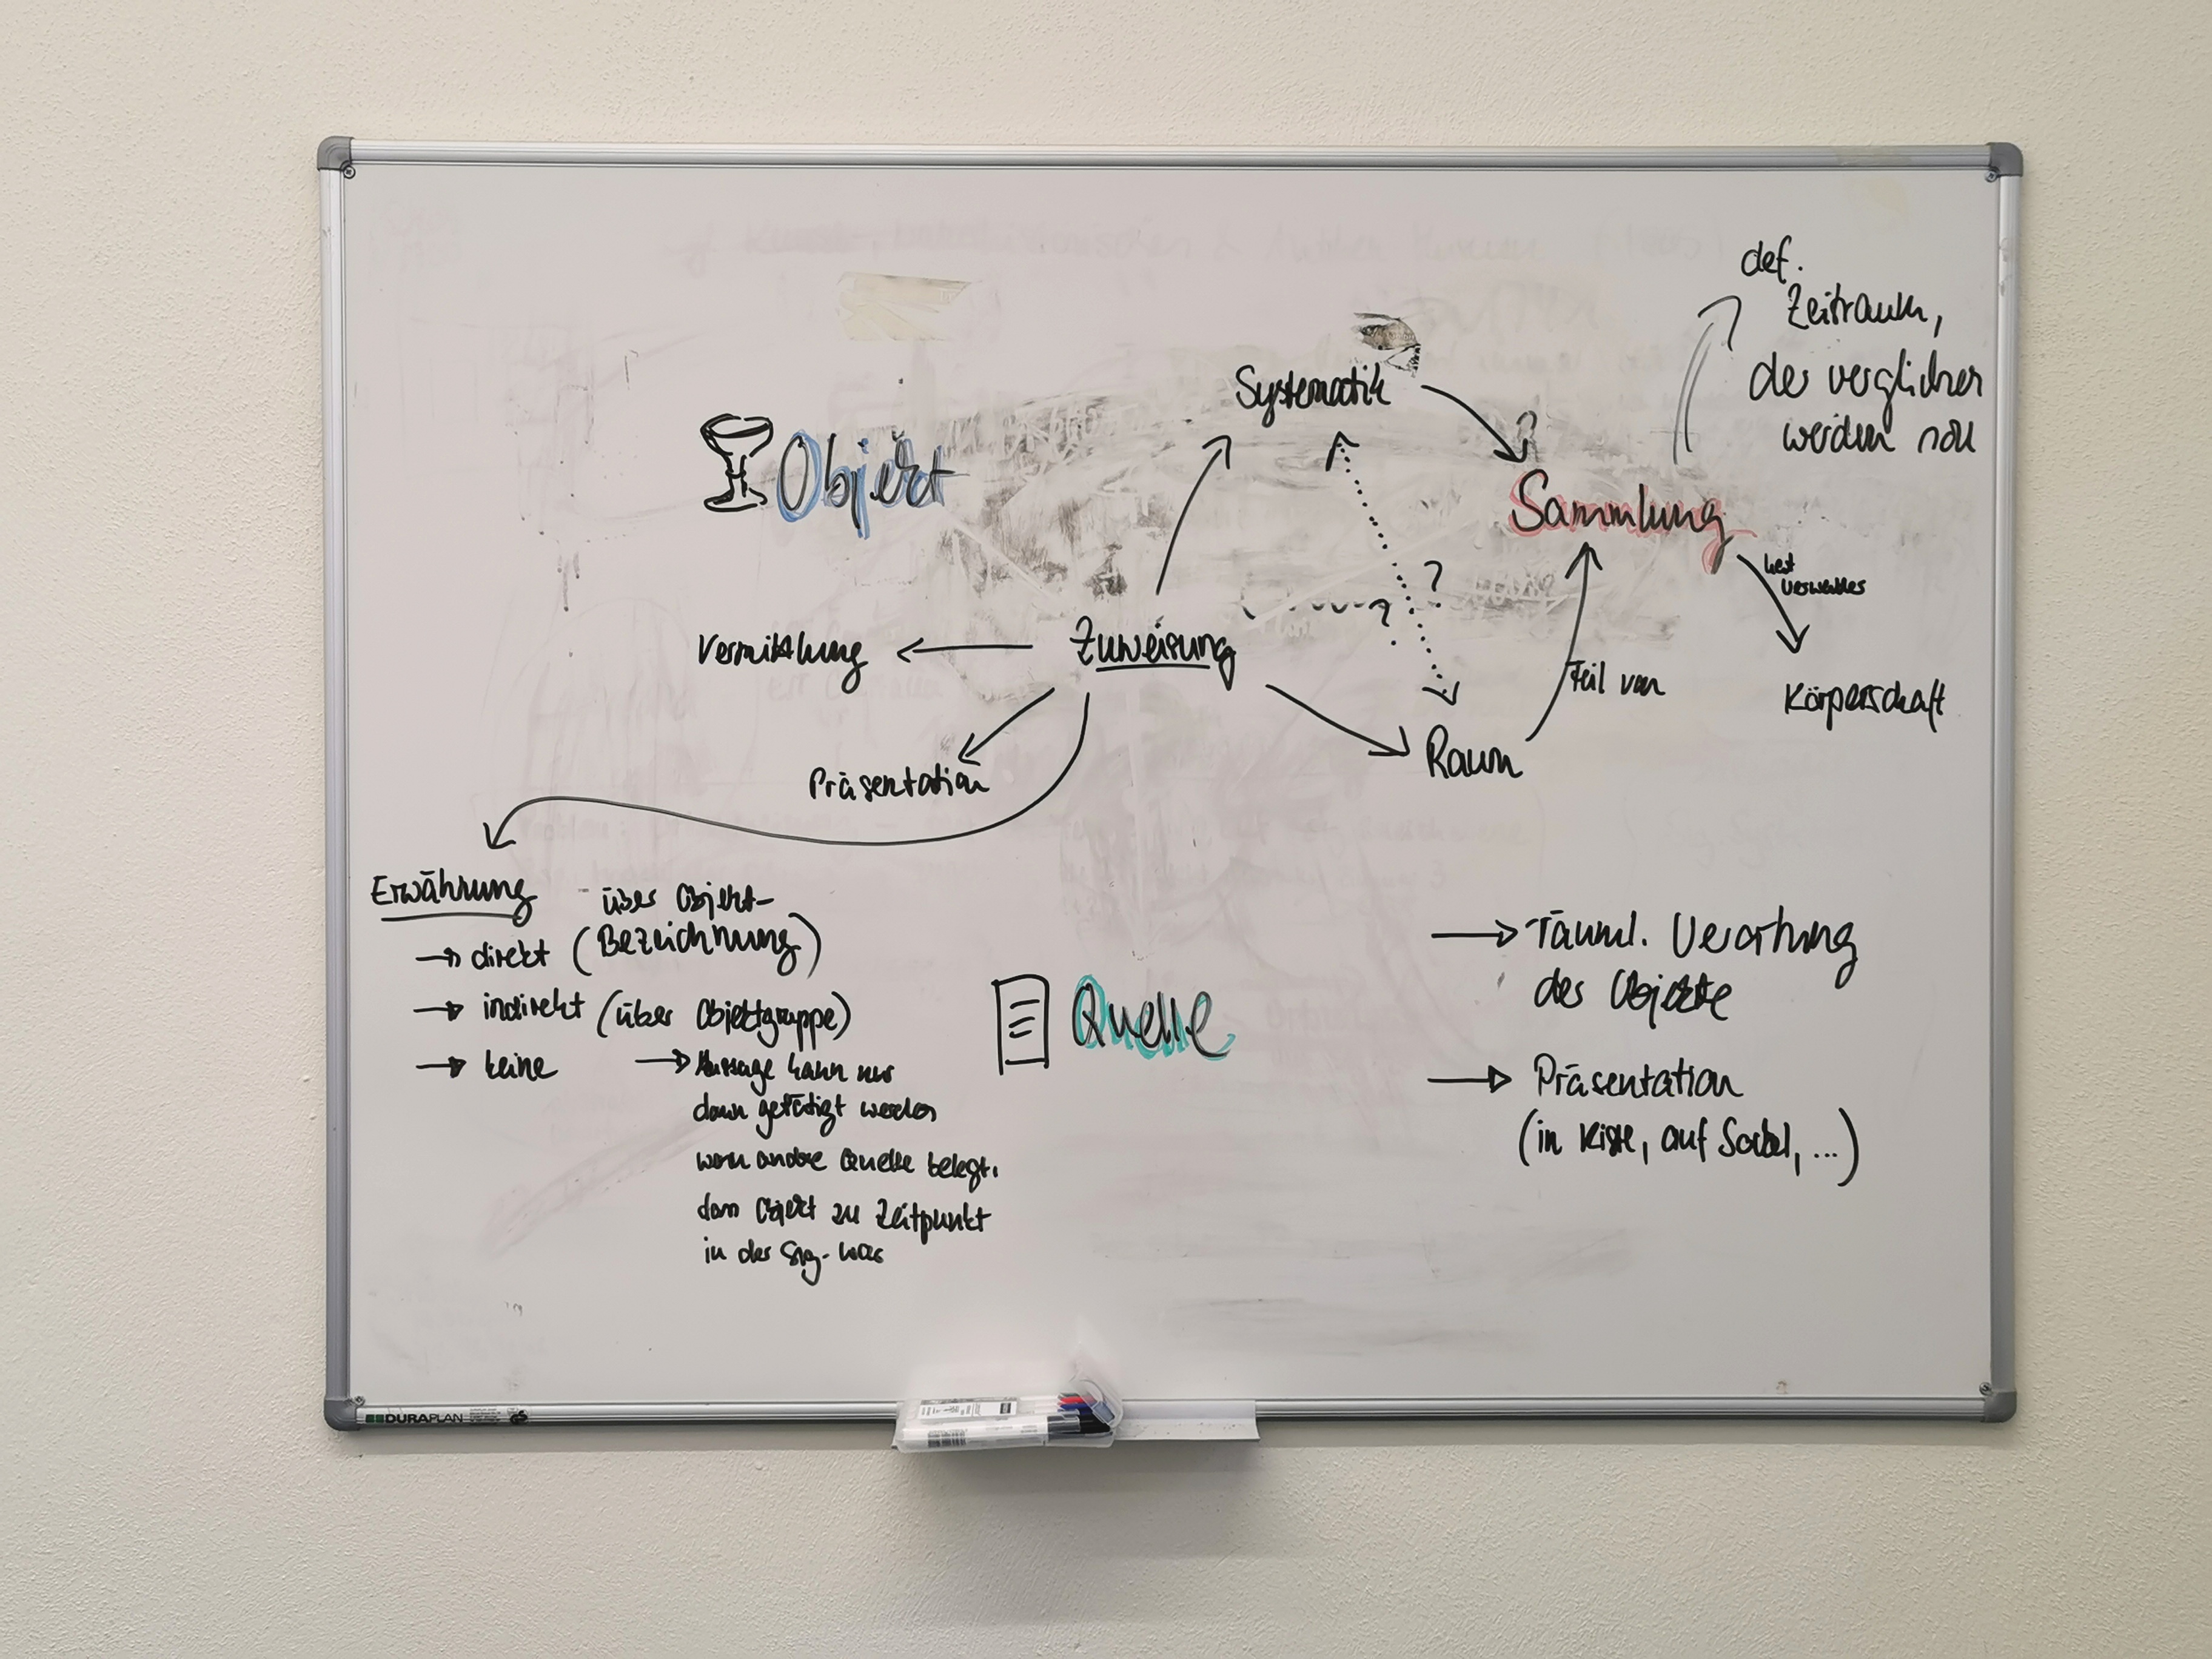 def.
Zeitraum,
der verglichen
werden soll
Systematik
Objekt
Sammlung
?
hat
verwaltes
Zuweisung
?
Vermittlung
Teil von
Körperschaft
Raum
Präsentation
Erwähnung
über Objekt-
→ direkt (Bezeichnung)
→ indirekt (über Objektgruppe)
→ keine → Aussage kann nur
dann getätigt werden
wenn andere Quelle belegt,
dass Objekt zu Zeitpunkt
in der Slg. war
Quelle
→ räuml. Verortung
des Objekte
→ Präsentation
(in Kiste, auf Sockel, ...)
DURAPLAN